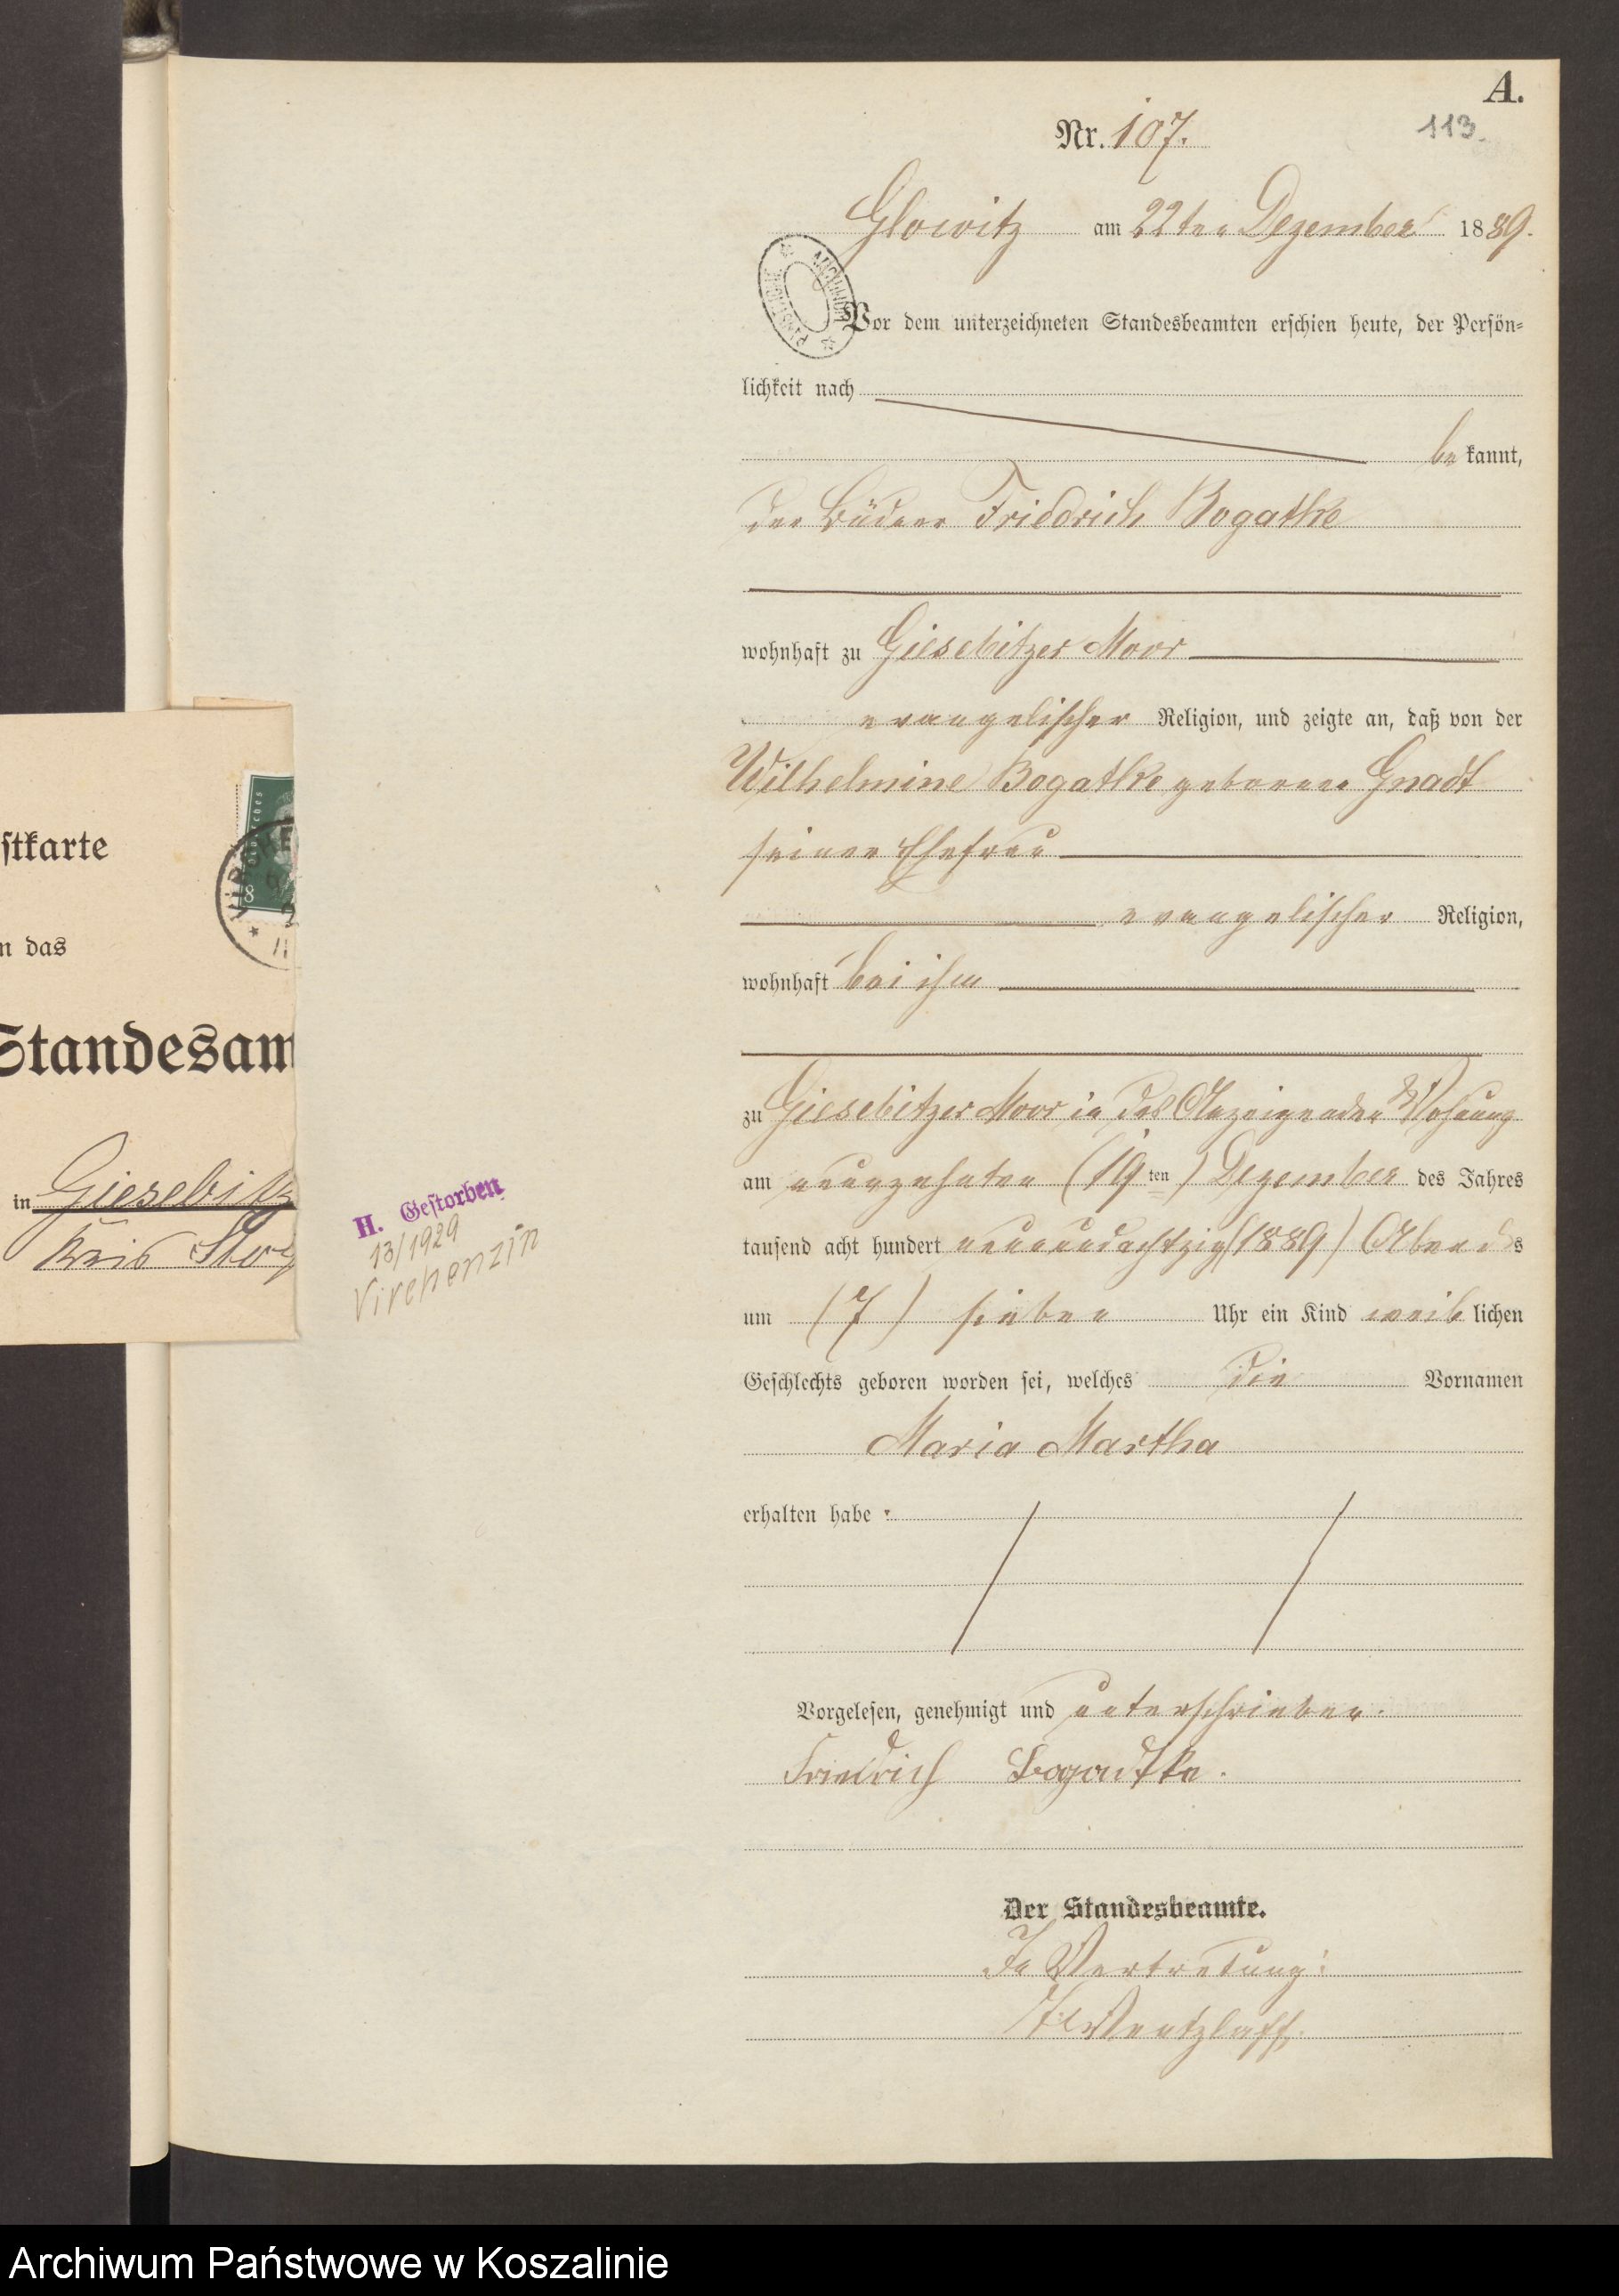 A.
Nr. 107.
113.
Glowitz am 22ten Dezember 1889.
Vor dem unterzeichneten Standesbeamten erschien heute, der Persön=
lichkeit nach
bekannt,
der Büdner Friedrich Bogatke
wohnhaft zu Giesebitzer Moor
evangelischer Religion, und zeigte an, daß von der
Wilhelmine Bogatke geborene Gnadt
seiner Ehefrau
evangelischer Religion,
wohnhaft bei ihm
zu Giesebitzer Moor in des Anzeigenden Wohnung
am neunzehnten (19ten) Dezember des Jahres
tausend acht hundert neunundachtzig (1889) Abends
um (7) sieben Uhr ein Kind weiblichen
Geschlechts geboren worden sei, welches die Vornamen
Maria Martha
erhalten habe
Vorgelesen, genehmigt und unterschrieben.
Friedrich Bogadtke.
Der Standesbeamte.
In Vertretung:
Wentzlaff.
H. Gestorben
13/1929
Virchenzin
stkarte
8
n das
Standesam
in Giesebitz
Kreis Stol
Archiwum Państwowe w Koszalinie